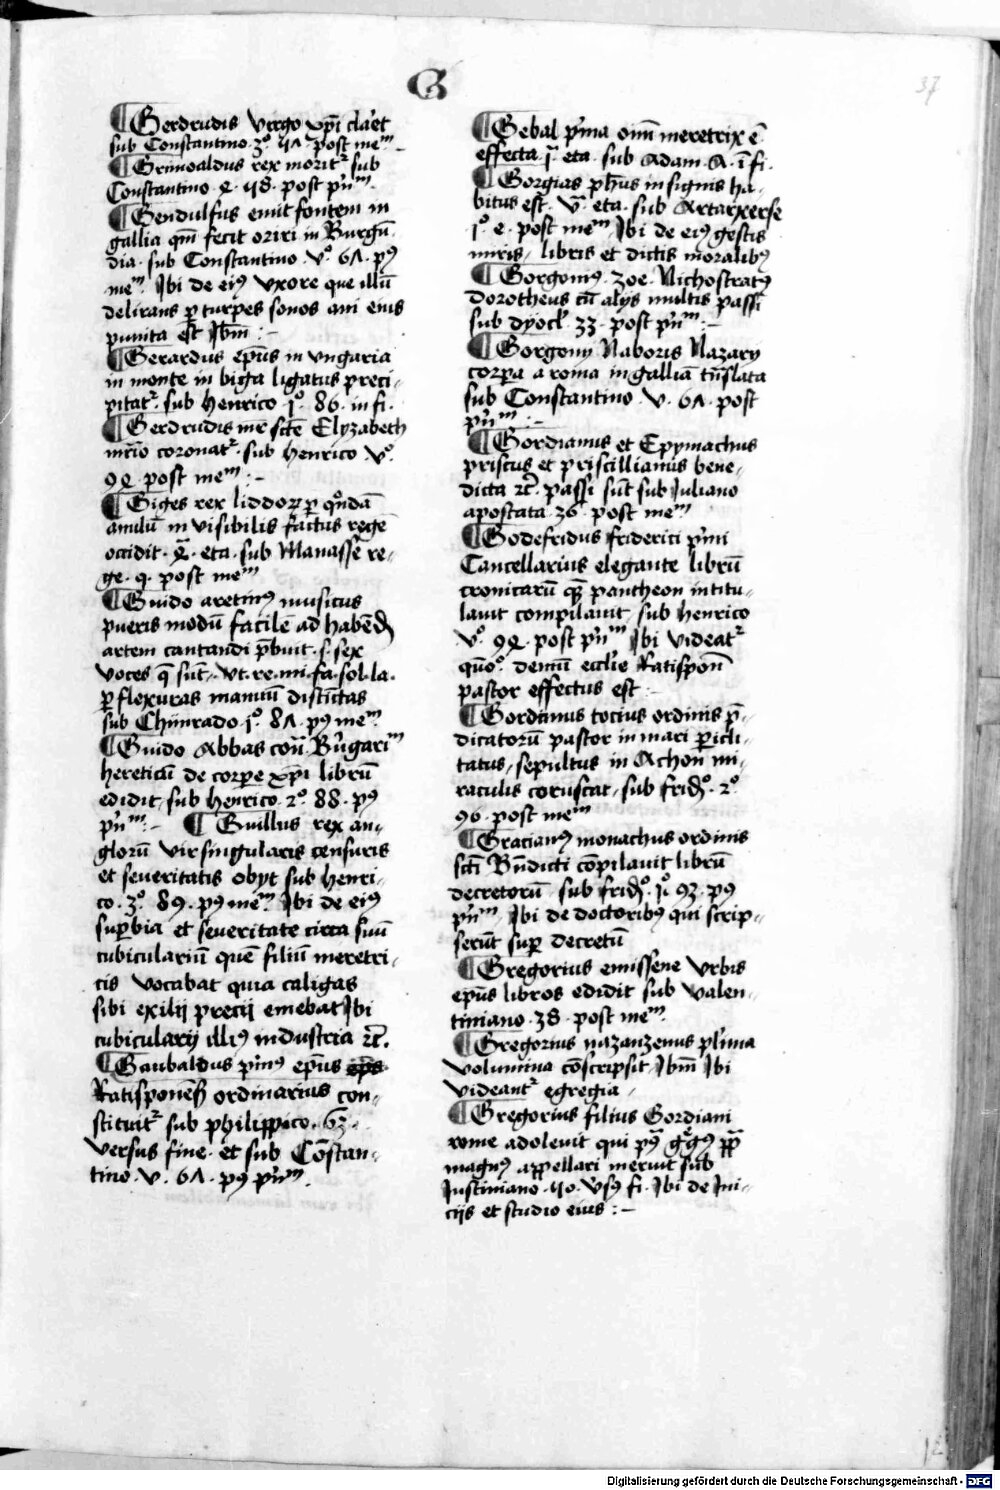 G
37
¶ Gerdrudis virgo xp̄i claret
sub Constantino · 3º · 57 · post meᵐ
¶ Grimoaldus rex moritʳ sub
Constantino · 4 · 58 · post pn̄ᵐ
¶ Gendulfus emit fontem in
gallia qm̄ fecit oriri in Burgū
dia · sub Constantino · vº · 67 · pꝰ
meᵐ Ibi de eiꝰ vxore que illū
delirans ꝑ turpes sonos ani eius
punita est Ibm̄ :
¶ Gerardus ep̄us in vngaria
in monte in biga ligatus preci-
pitatʳ · sub henrico · 1º · 86 · in fi ·
¶ Gerdrudis mr̄ scē Elyzabeth
mr̄io coronatʳ · sub henrico vº ·
94 · post meᵐ :-
¶ Giges rex liddoꝝ ꝑ qn̄dā
anulū in visibilis factus regē
occidit · 4ᵃ · eta · sub Manasse re-
ge · q · post meᵐ
¶ Guido aretinꝰ musicus
pueris modū facilē ad habēd
artem cantandi p̄buit · s · sex
voces q̄ sūt · vt · re · mi · fa · sol · la ·
ꝑ flexuras manuū distīctas
sub Chūnrado · 1º · 87 · pꝰ meᵐ
¶ Guido Abbas con̄ Būgariᵐ
hereticū de corpe xp̄i librū
edidit sub henrico · 2º · 88 · pꝰ
pn̄ᵐ :- ¶ Guillus rex an-
glorū vir singularis censuris
et seueritatis obyt sub henri-
co · 3º · 89 · pꝰ meᵐ Ibi de eiꝰ
suꝑbia et seueritate circa suū
cubiculariū quē filiū meretri-
cis vocabat quia caligas
sibi exilij precij emebat Ibi
cubicularij illiꝰ industria ꝛc̄ .
¶ Gaubaldus p̄mꝰ ep̄us ep̄s
Ratisponēs ordinarius con-
stituitʳ sub philippico · 63 ·
versus fine · et sub Cōstan-
tino · v · 67 · pꝰ pn̄ᵐ ·
¶ Gebal p̄ma oīm meretrix ē
effecta · 1ᵃ · eta · sub Adam · A · ī fi ·
¶ Gorgias ph̄us insignis ha-
bitus est · vᵃ · eta · sub Artarxerse
· 1º · e · post meᵐ Ibi de eiꝰ gestis
miris, libris et dictis moralibꝰ
¶ Gorgoniꝰ · Zoe · Nichostratꝰ
dorotheus cū alijs multis passi
sub dyocl̄ · 33 · post pn̄ᵐ :-
¶ Gorgony Naboris Nazary
corpa a roma in galliā trāslata
sub Constantino · v · 67 · post
pn̄ᵐ :-
¶ Gordianus et Epymachus
priscus et priscillianus bene-
dicta ꝛc̄ · passi sūt sub Iuliano
apostata 36 · post meᵐ
¶ Godefridus friderici p̄mi
Cancellarius elegante librū
cronicarū q̄ pantheon intitu-
lauit compilauit, sub henrico
vº · 94 · post pn̄ᵐ Ibi videatʳ
quōº · demū ecclīe Ratispon̄
pastor effectus est :-
¶ Gordanus tocius ordinis p̄-
dicatorū pastor in mari ꝑicli-
tatus, sepultus in Achon mi-
raculis coruscat, sub frid · 2º ·
96 · post meᵐ
¶ Gracianꝰ monachus ordinis
sct̄i Bn̄dicti cōpilauit librū
decretorū · sub frid · 1º · 93 · pꝰ
pn̄ᵐ, Ibi de doctoribꝰ qui scrip-
serūt suꝑ decretū
¶ Gregorius emissene vrbis
ep̄us libros edidit sub valen-
tiniano · 38 · post meᵐ ·
¶ Gregorius nazanzenus plīma
volumina cōscripsit Ibm̄ Ibi
videantʳ egregia ·
¶ Gregorius filius Gordiani
rome adoleuit qui pꝰ gᵒgꝰ pp̄
magnꝰ appellari meruit sub
Iustiniano · 50 · vsꝰ fi · Ibi de Ini-
cijs et studio eius :-
Digitalisierung gefördert durch die Deutsche Forschungsgemeinschaft - DFG